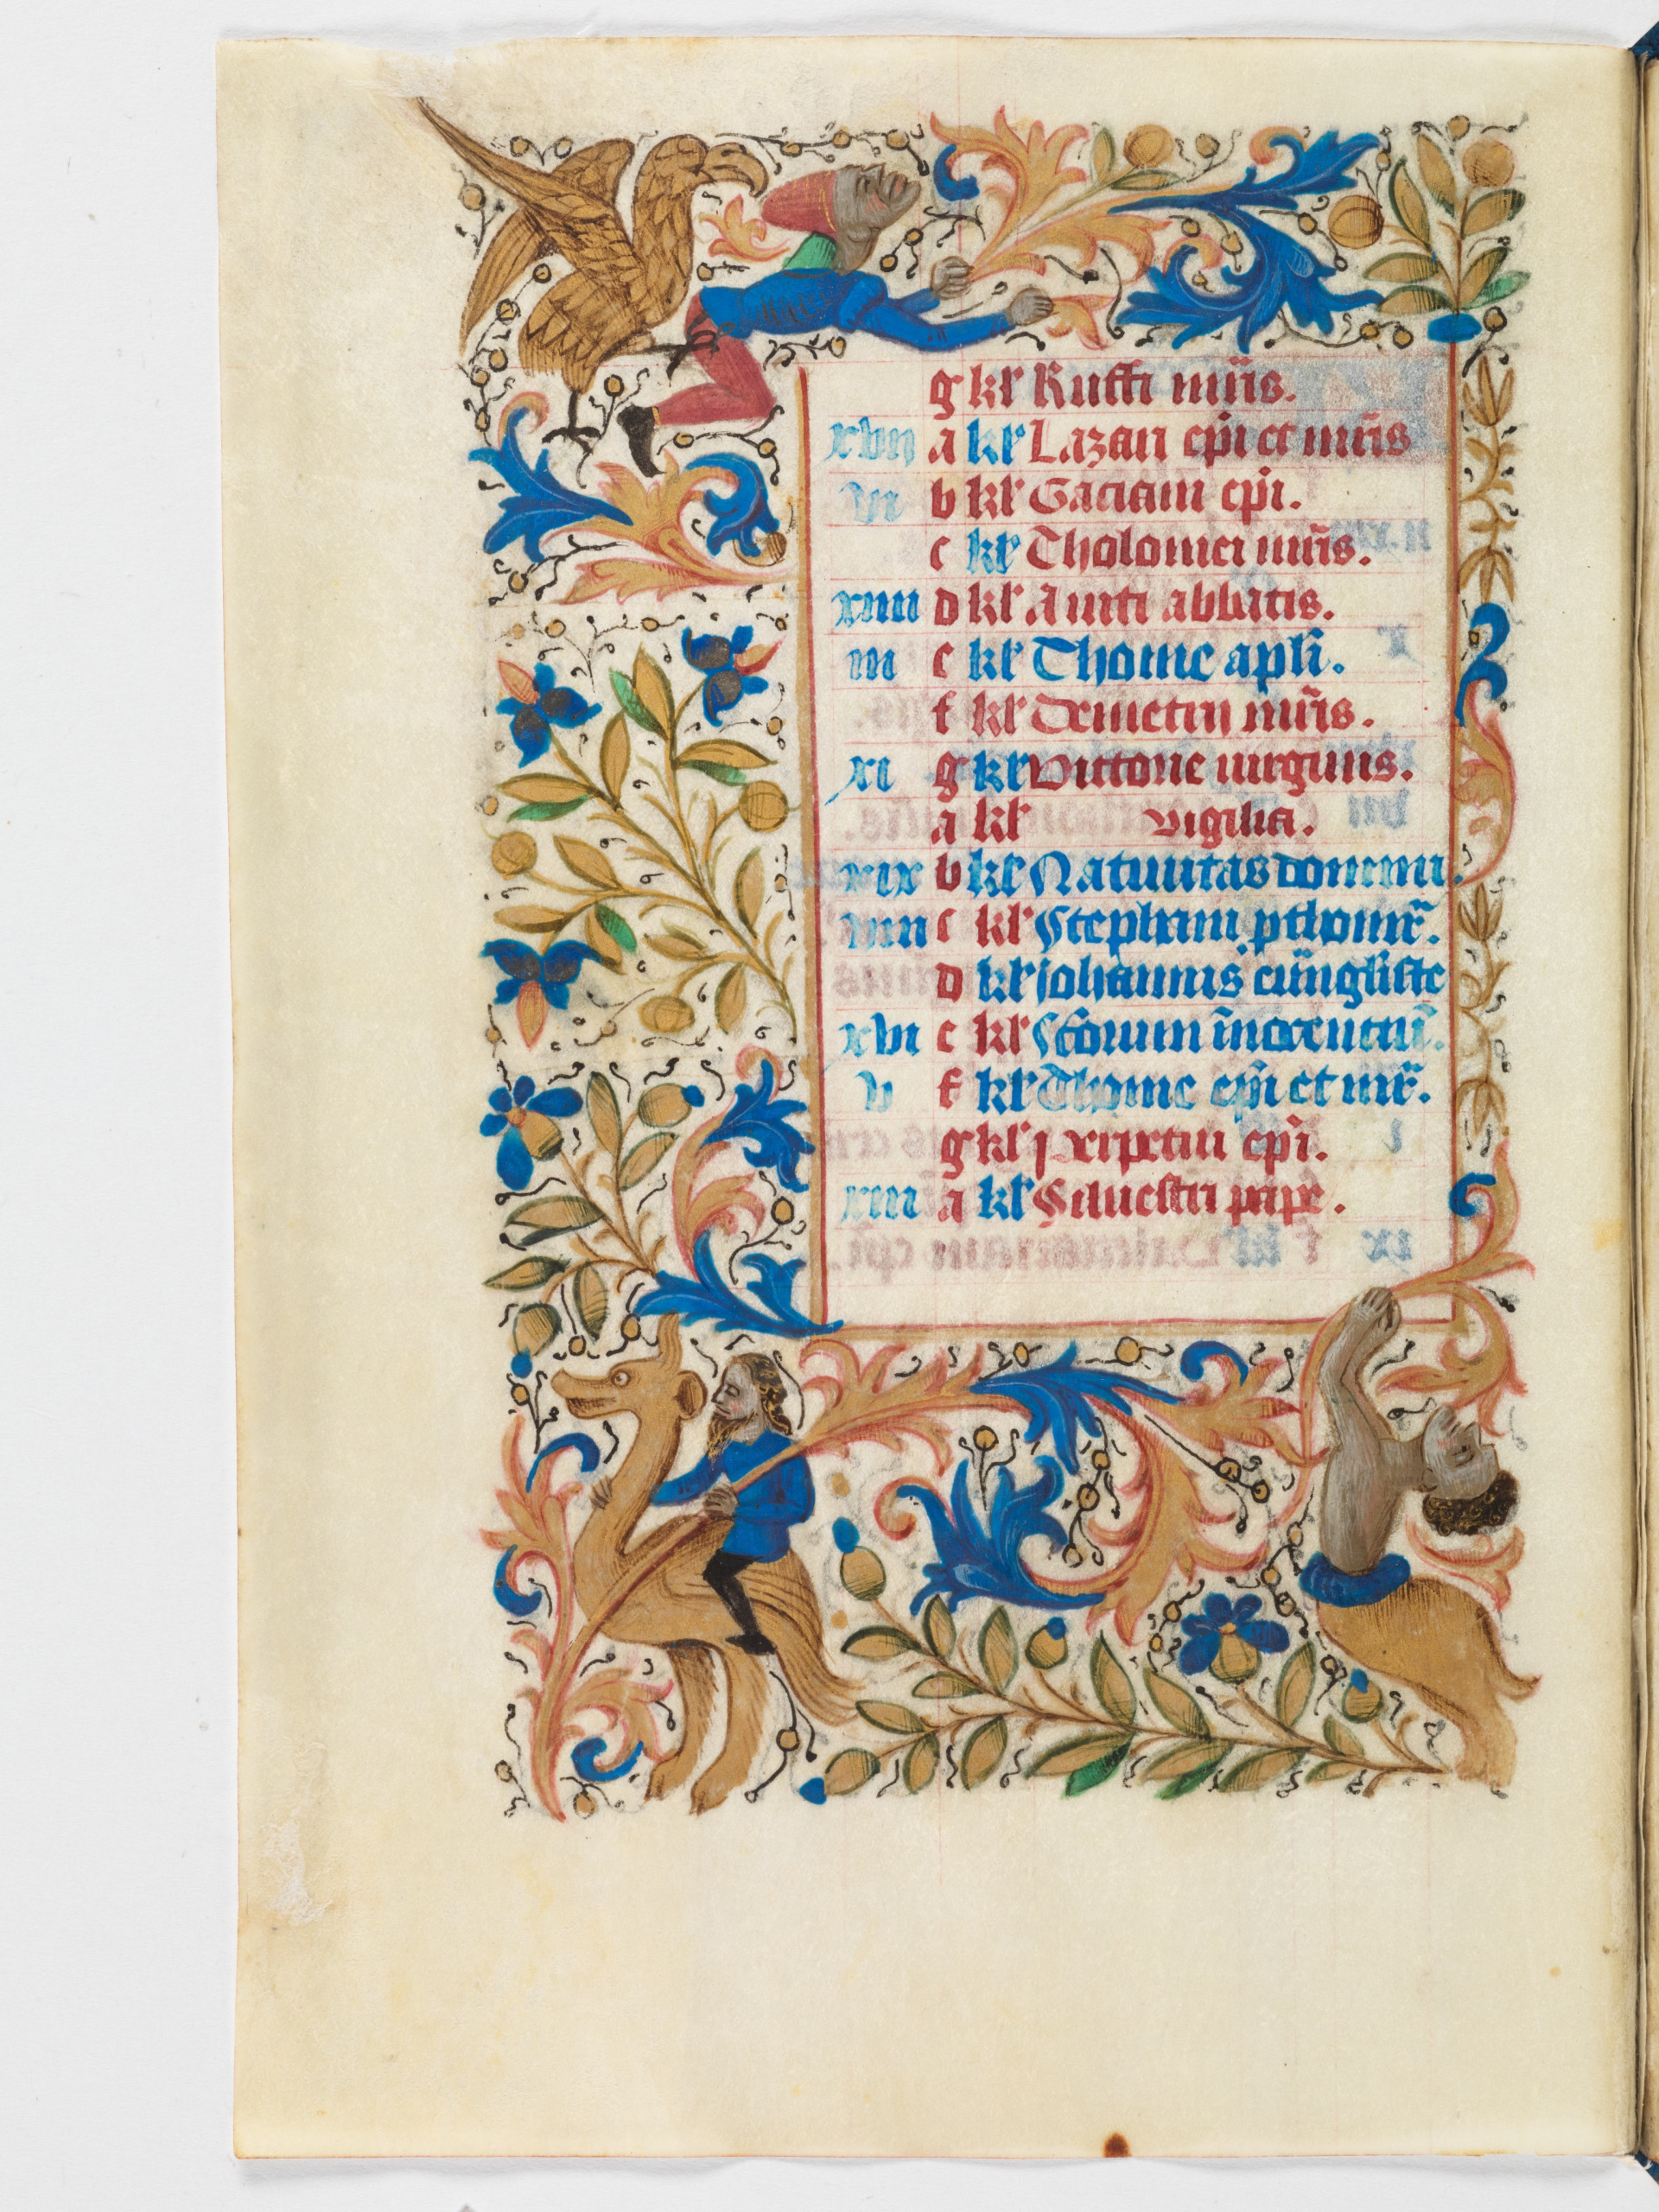 g kł Ruffi mr̃is.
xvii a kł Lazari ep̃i et mr̃is
vi b kł Gaciani ep̃i.
c kł Tholomei mr̃is.
xiiii d kł Aviti abbatis.
iii e kł Thome apl̃i.
f kł Demetrij mr̃is.
xi g kł Victorie uirginis.
a kł vigilia.
xix b kł Natiuitas domini.
viii c kł Stephani
d kł iohannis eũngliste
xvi e kł Sc̃orum ĩnocentiũ.
v f kł Thome ep̃i et mr̃.
g kł Perpetui ep̃i.
xiii a kł Siluestri pape.